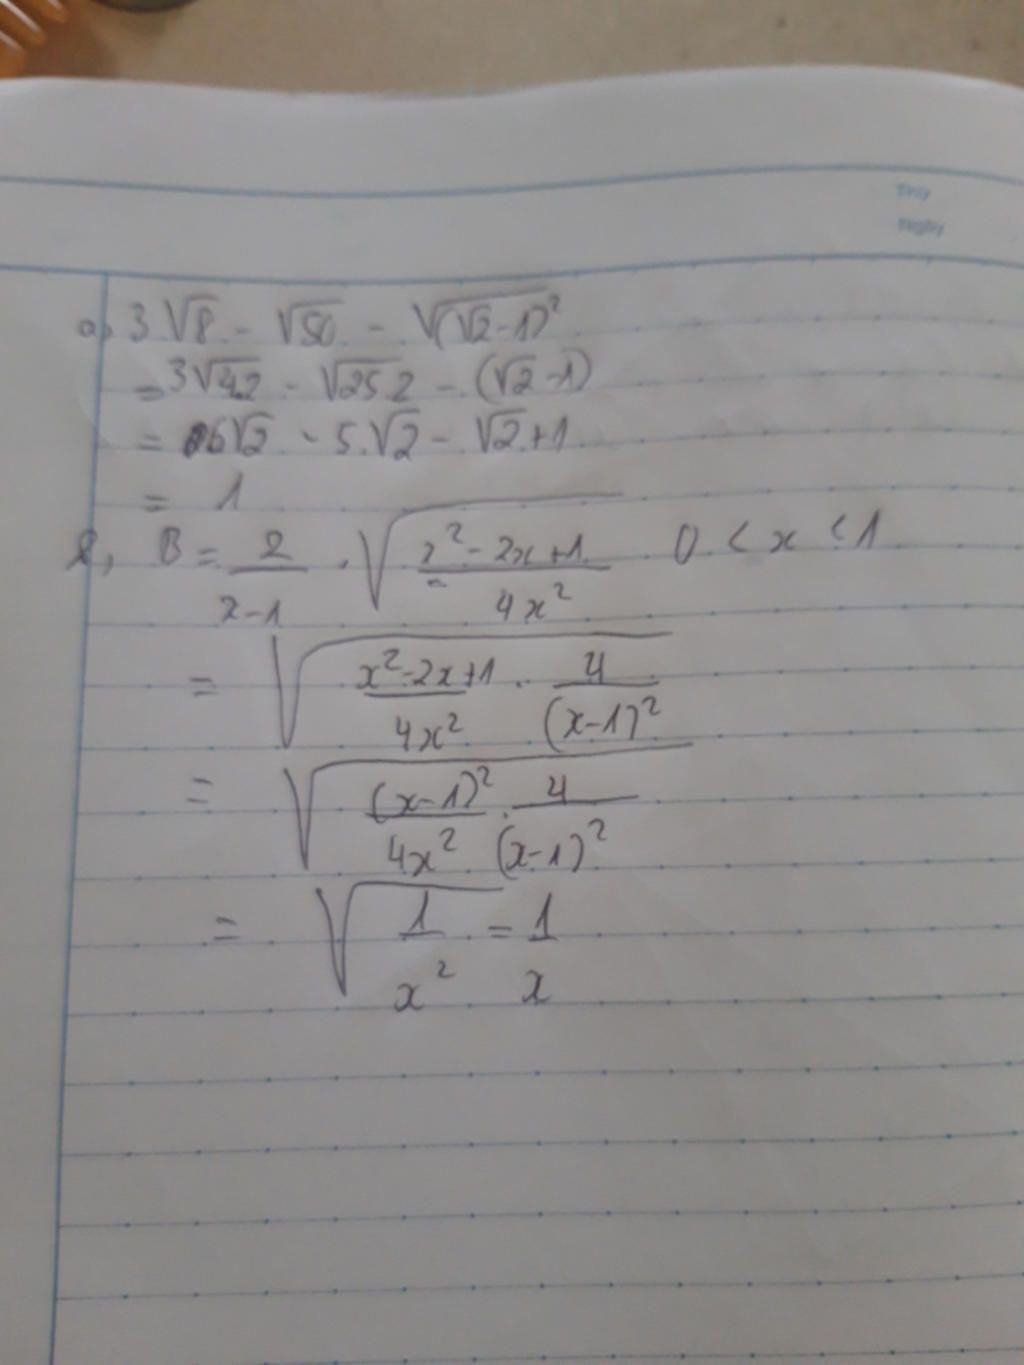 Thứ
Ngày
a) 3√8 - √50 - √(√2-1)²
= 3√4.2 - √25.2 - (√2-1)
= 6√2 - 5.√2 - √2+1
= 1
b, B = 2/(x-1) . √((x²-2x+1)/(4x²)) 0 < x < 1
= √((x²-2x+1)/(4x²) . 4/(x-1)²)
= √((x-1)²/(4x²) . 4/(x-1)²)
= √(1/x²) = 1/x